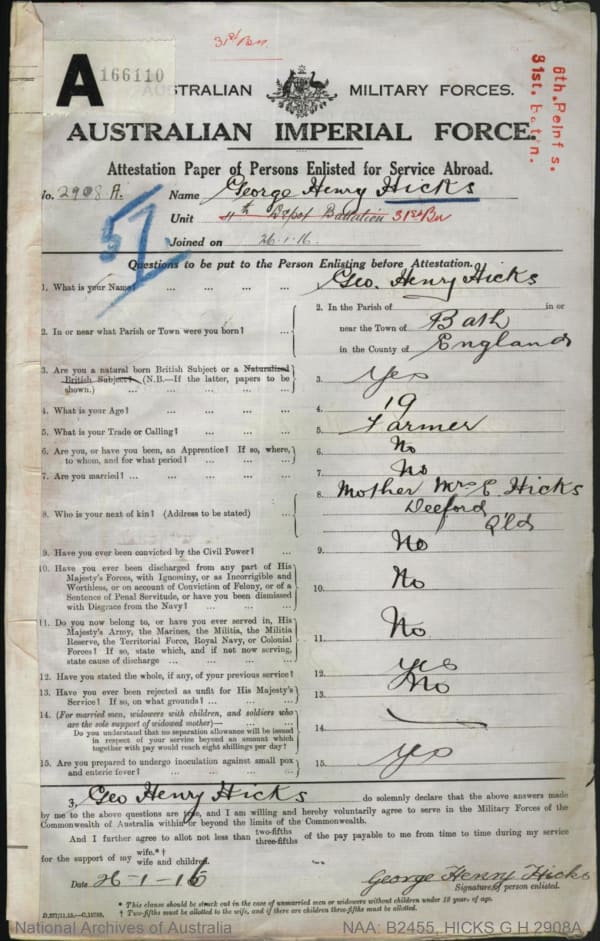 31st Bn.
A 166110
AUSTRALIAN MILITARY FORCES.
AUSTRALIAN IMPERIAL FORCE.
6th. Reinf s.
31st. Batt'n.
Attestation Paper of Persons Enlisted for Service Abroad.
No. 2908 A. Name George Henry Hicks
Unit 11th Depot Battalion 31st Bn
Joined on 26.1.16.
Questions to be put to the Person Enlisting before Attestation.
1. What is your Name? ... ... ... ... Geo. Henry Hicks
2. In or near what Parish or Town were you born? ...
2. In the Parish of in or
near the Town of Bath
in the County of England
3. Are you a natural born British Subject or a Naturalized
British Subject? (N.B.—If the latter, papers to be
shown.) ... ... ... ...
3. Yes
4. What is your Age? ... ... ... ... 4. 19
5. What is your Trade or Calling? ... ... ... 5. Farmer
6. Are you, or have you been, an Apprentice? If so, where,
to whom, and for what period? ... ... ...
6. No
7. Are you married? ... ... ... ... 7. No
8. Who is your next of kin? (Address to be stated) ...
8. Mother Mrs E. Hicks
Deeford
Q'ld
9. Have you ever been convicted by the Civil Power? ... 9. No
10. Have you ever been discharged from any part of His
Majesty's Forces, with Ignominy, or as Incorrigible and
Worthless, or on account of Conviction of Felony, or of a
Sentence of Penal Servitude, or have you been dismissed
with Disgrace from the Navy? ... ... ...
10. No
11. Do you now belong to, or have you ever served in, His
Majesty's Army, the Marines, the Militia, the Militia
Reserve, the Territorial Force, Royal Navy, or Colonial
Forces? If so, state which, and if not now serving,
state cause of discharge ... ... ...
11. No
12. Have you stated the whole, if any, of your previous service? 12. Yes
13. Have you ever been rejected as unfit for His Majesty's
Service? If so, on what grounds? ... ...
13. No
14. (For married men, widowers with children, and soldiers who
are the sole support of widowed mother)— ... ...
Do you understand that no separation allowance will be issued
in respect of your service beyond an amount which
together with pay would reach eight shillings per day?
14.
15. Are you prepared to undergo inoculation against small pox
and enteric fever? ... ... ... ...
15. Yes
I, Geo Henry Hicks do solemnly declare that the above answers made
by me to the above questions are true, and I am willing and hereby voluntarily agree to serve in the Military Forces of the
Commonwealth of Australia within or beyond the limits of the Commonwealth.
And I further agree to allot not less than two-fifths three-fifths of the pay payable to me from time to time during my service
for the support of my wife.*† wife and children.
Date 26-1-16 George Henry Hicks
Signature of person enlisted.
* This clause should be struck out in the case of unmarried men or widowers without children under 18 years of age.
† Two-fifths must be allotted to the wife, and if there are children three-fifths must be allotted.
National Archives of Australia NAA: B2455, HICKS G H 2908A